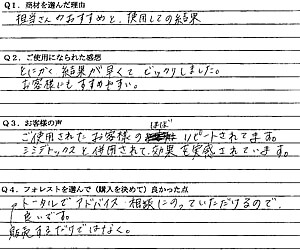 Q1. 商材を選んだ理由
担当さんのおすすめと、使用しての結果
Q2. ご使用になられた感想
とにかく結果が早くてビックリしました。
お客様にもすすめやすい。
Q3. お客様の声
ほぼ
ご使用されたお客様の リピートされてます。
ミミデトックスと使用されて、効果を実感されています。
Q4. フォレストを選んで(購入を決めて)良かった点
トータルでアドバイス・相談にのっていただけるので、
良いです。
販売するだけではなく。